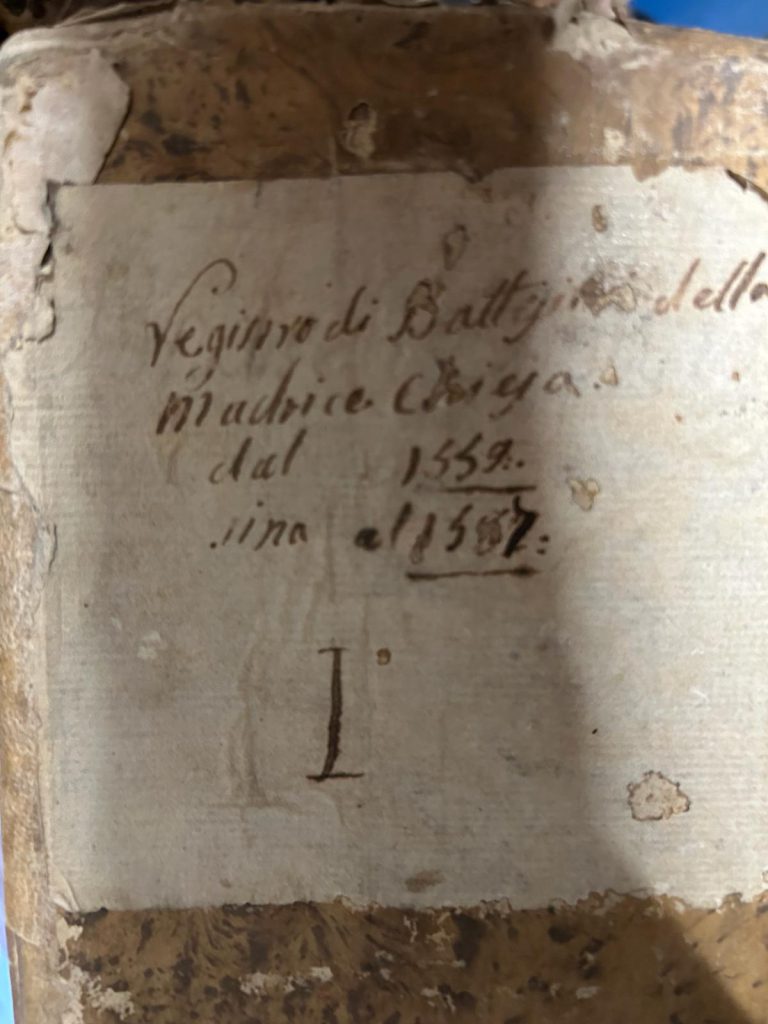 Registro di Battesimi della
Madrice Chiesa.
dal 1559.
sino al 1587:
I